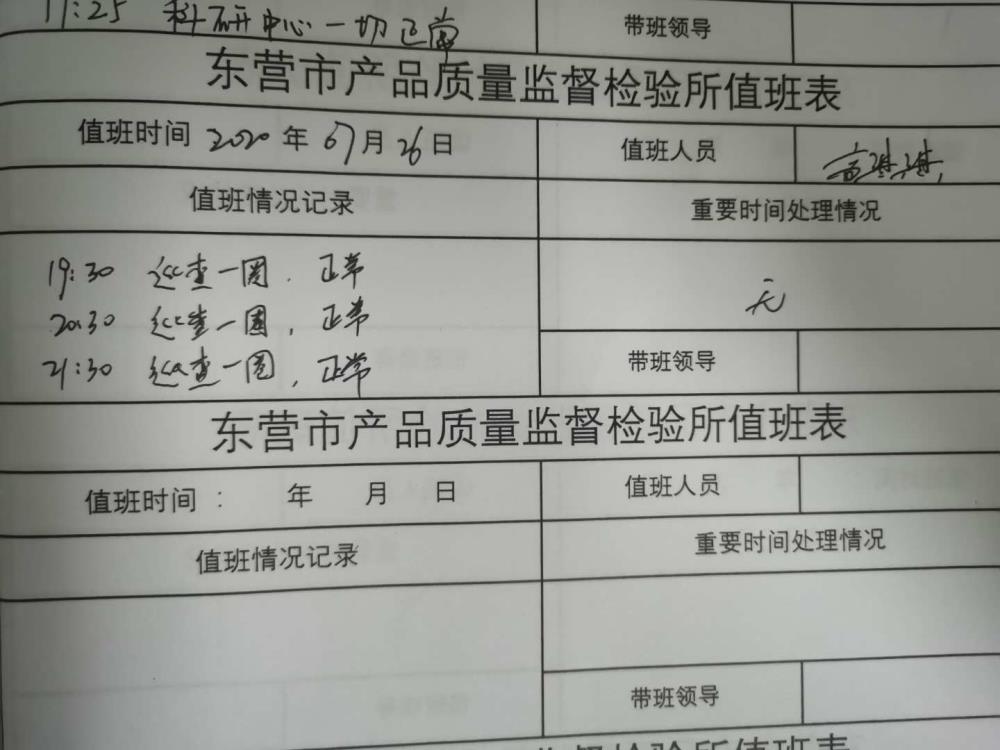 17:25 科研中心一切正常
带班领导
东营市产品质量监督检验所值班表
值班时间 2020 年 07 月 26 日 值班人员
值班情况记录 重要时间处理情况
19:30 巡查一圈.正常
无
20:30 巡查一圈,正常
21:30 巡查一圈,正常
带班领导
东营市产品质量监督检验所值班表
值班时间: 年 月 日 值班人员
值班情况记录 重要时间处理情况
带班领导
督检验所值班表